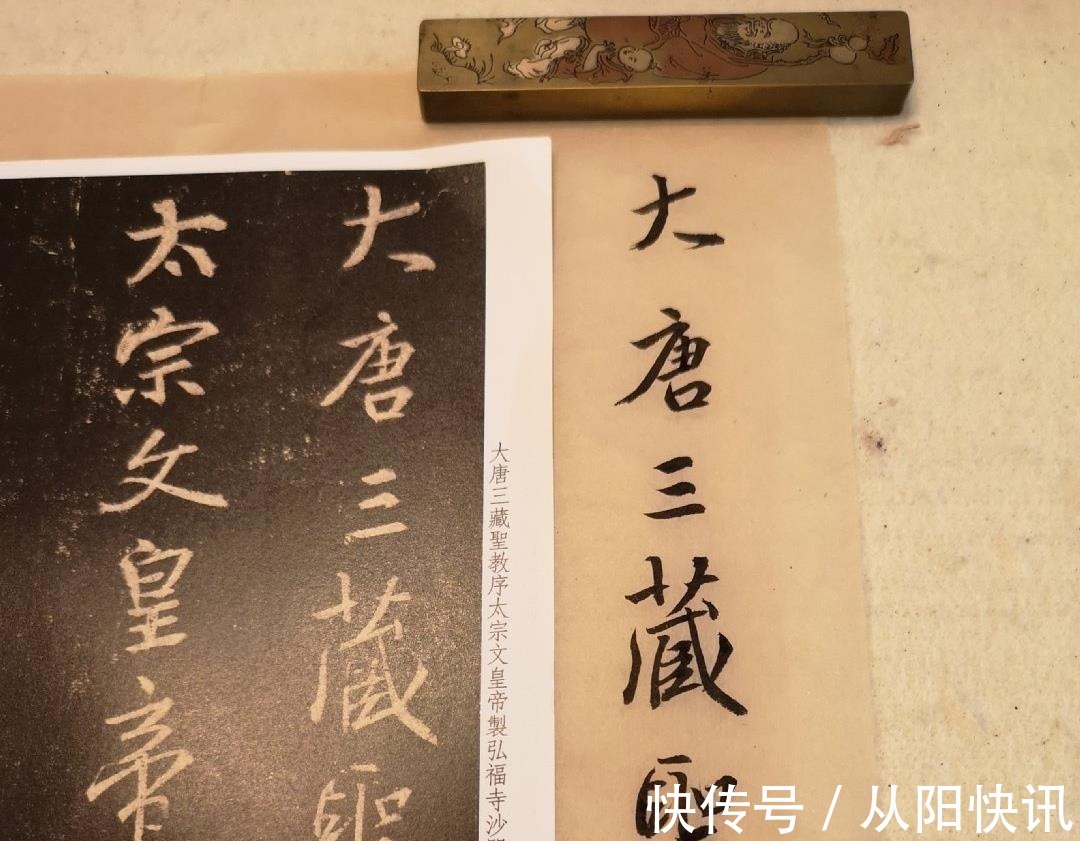 大唐三藏聖
大唐三藏聖教序太宗文皇帝製弘福寺沙
大唐三藏聖
太宗文皇帝
快传号 / 从阳快讯